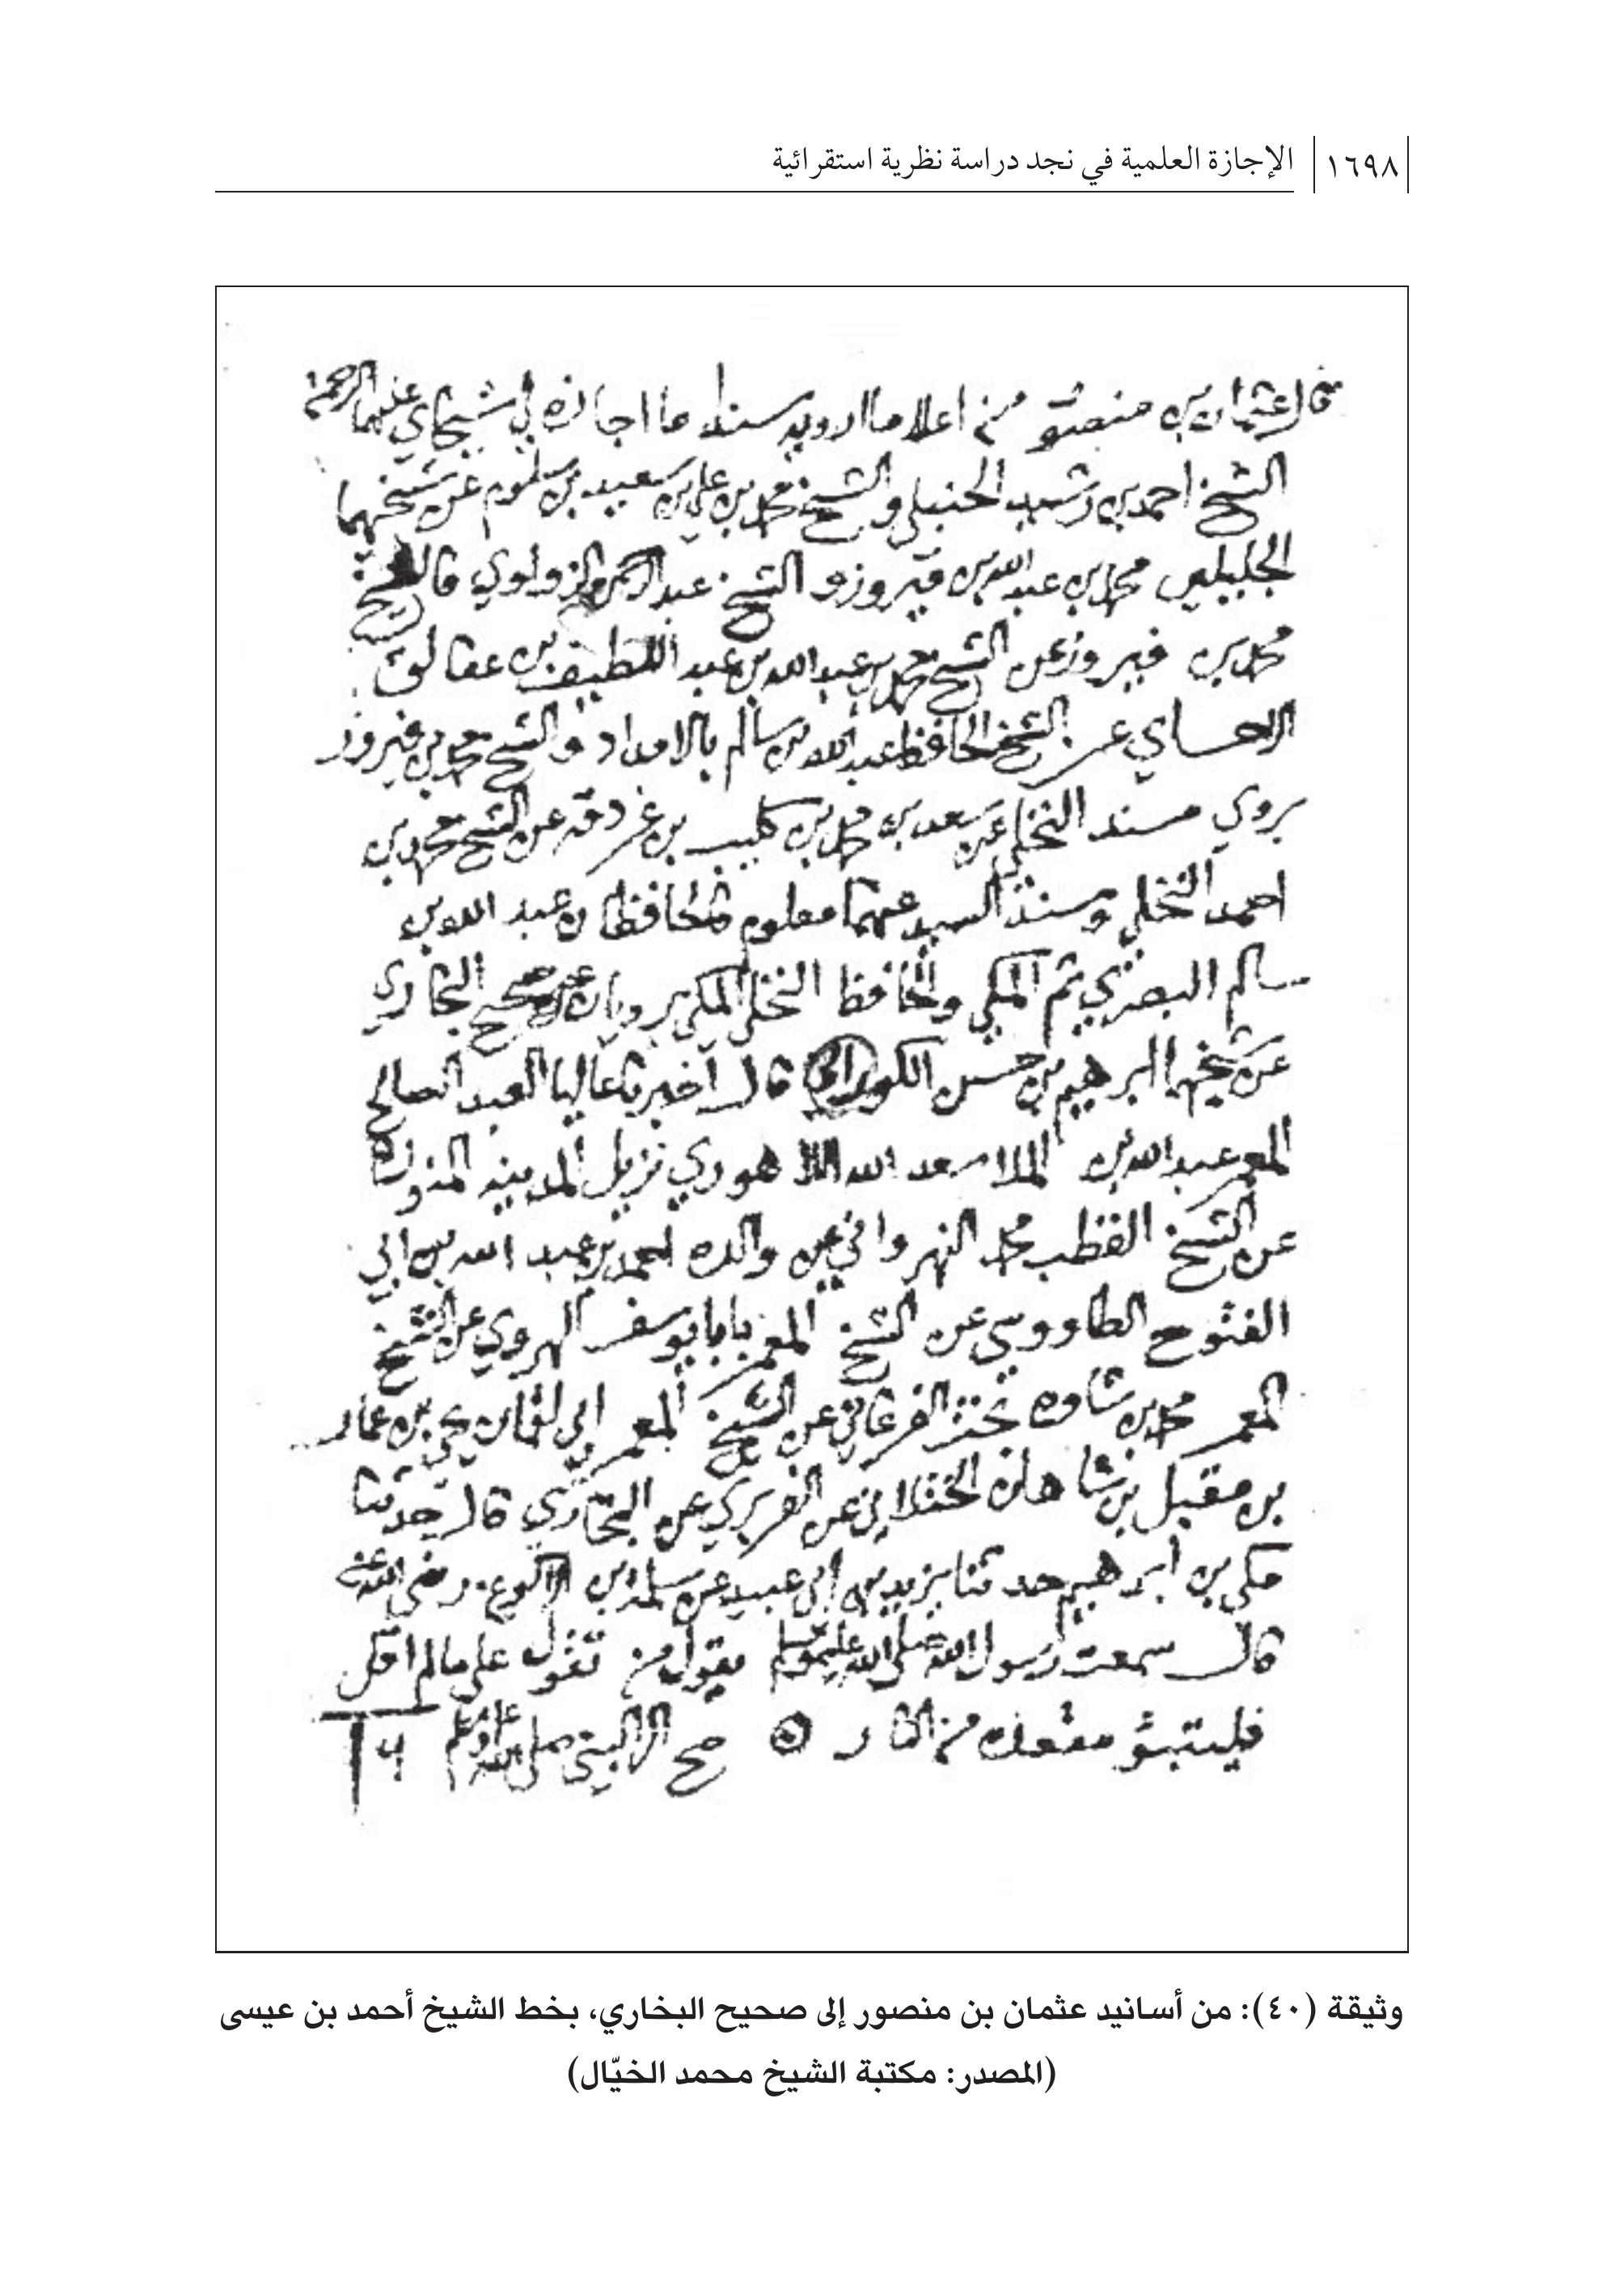 ١٦٩٨ الإجازة العلمية في نجد دراسة نظرية استقرائية
قال عثمان بن منصور من اعلا ما اروي سندا ما اجازه لي شيخاي عليهما الرحمة
الشيخ احمد بن رشيد الحنبلي والشيخ محمد بن علي بن سعيد بن سلوم عن شيخهما
الجليلين محمد بن عبد الله بن فيروز والشيخ عبد الرحمن الزواوي قال الشيخ
محمد بن فيروز عن الشيخ محمد بن عبد الله بن عبد اللطيف بن عفالق
الاحساي عن الشيخ الحافظ عبد الله بن سالم بالامداد والشيخ محمد بن فيروز
يروي مسند النخلي عن سعد بن محمد بن كليب بن غردقه عن الشيخ محمد بن
احمد النخلي وسند السيد عنهما معلوم فالحافظان عبد الله بن
سالم البصري ثم المكي والحافظ النخلي المكي يرويان صحيح البخاري
عن شيخهما ابرهيم بن حسن الكوراني قال اخبرنا عاليا العبد الصالح
المعمر عبد الله بن الملا سعد الله اللاهوري نزيل المدينه المنوره
عن الشيخ القطب محمد النهرواني عن والده احمد بن عبد الله بن ابي
الفتوح الطاووسي عن الشيخ المعمر بابا يوسف الهروي عن الشيخ
المعمر محمد بن شاده بخت الفرغاني عن الشيخ المعمر ابي لقمان يحيى بن عمار
بن مقبل بن شاهان الختلاني عن الفربري عن البخاري قال حدثنا
مكي بن ابرهيم حدثنا يزيد بن ابي عبيد عن سلمة بن الاكوع رضي الله عنه
قال سمعت رسول الله صلى الله عليه وسلم يقول من تقول علي ما لم اقل
فليتبؤ مقعده من النار صح الى النبي صلى الله عليه وسلم
وثيقة (٤٠): من أسانيد عثمان بن منصور إلى صحيح البخاري، بخط الشيخ أحمد بن عيسى
(المصدر: مكتبة الشيخ محمد الخيّال)